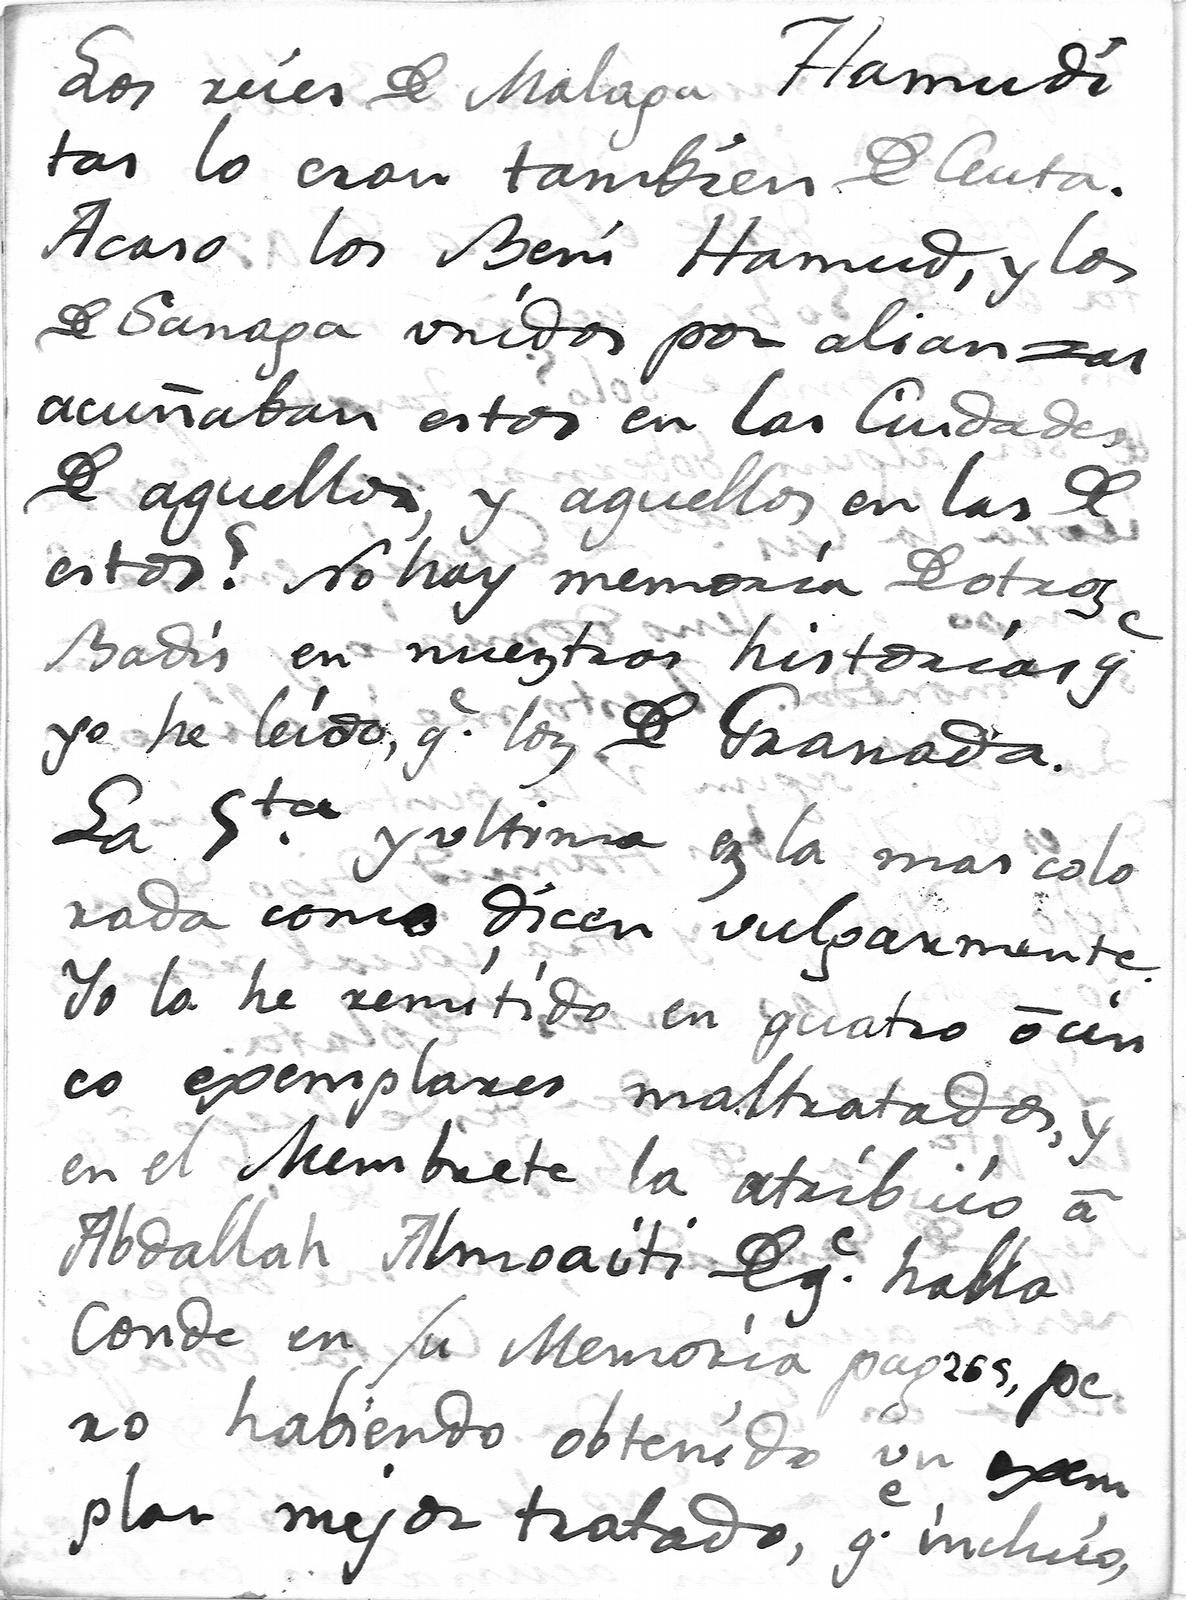 Los reies de Malaga Hamudi
tas lo eran tambien de Ceuta.
Acaso los Beni Hamud, y los
de Sanaga unidos por alianzas
acuñaban estos en las Ciudades
de aquellos, y aquellos en las de
estos? No hay memoria de otros
Badis en nuestras historias qᵉ
yo he leido, qᵉ. los de Granada.
La 5.ta y ultima es la mas colo
rada como dicen vulgarmente.
Yo la he remitido en quatro ō cin
co exemplares maltratados, y
en el Membrete la atribuio ā
Abdallah Almoaiti de qᵉ. habla
Conde en su Memoria pag 265, pe
ro habiendo obtenido un exem
plar mejor tratado, qᵉ. incluio,